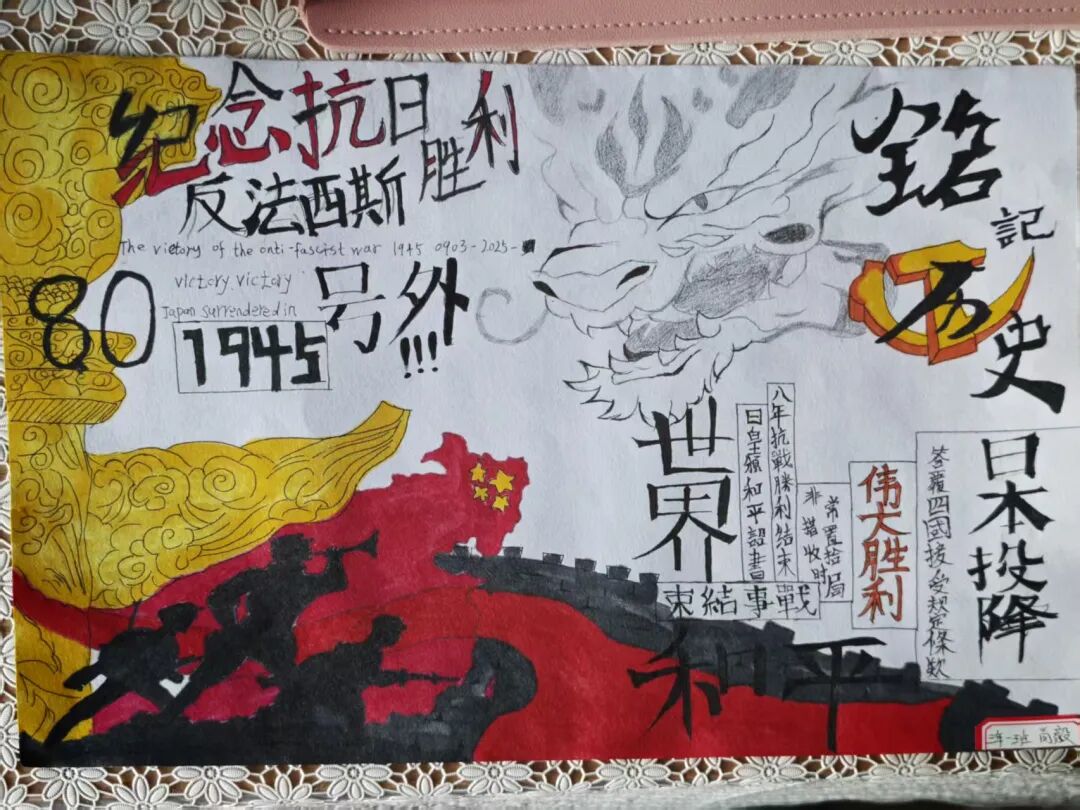 纪念抗日胜利
反法西斯
The victory of the anti-fascist war 1945 0903-2025-
victory.victory
Japan surrendered in
1945
80
号外!!!
銘記历史
日本投降
答覆四國接受規定條款
伟大胜利
常置拾局
非措收时
八年抗戰勝利結束
日皇頒和平詔書
束結事戰
世界和平